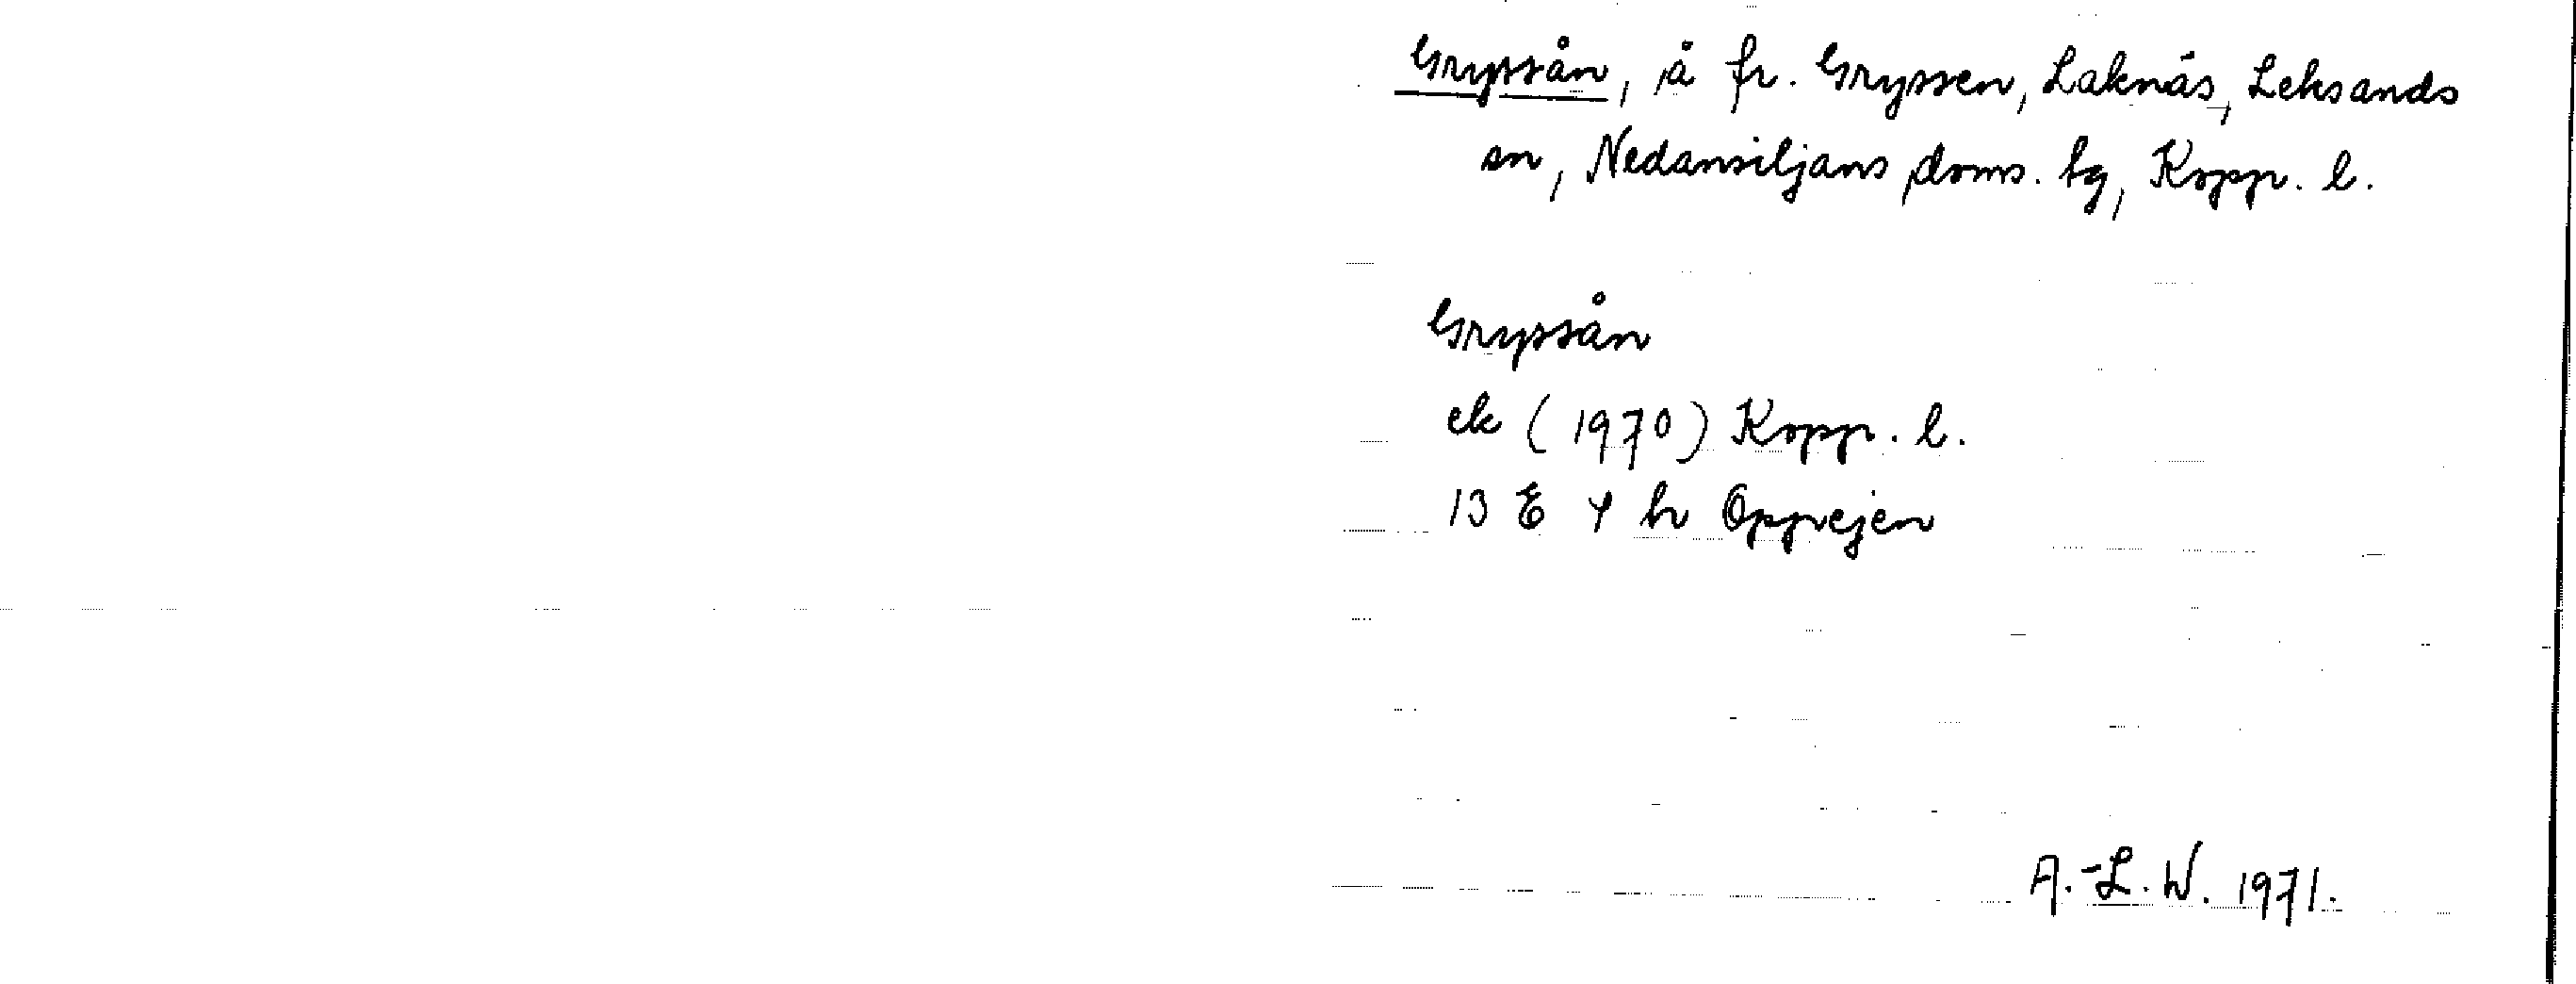 Gryssån, å fr. Gryssen, Laknäs, Leksands
sn, Nedansiljans doms. tg, Kopp. l.
Gryssån
ek (1970) Kopp. l.
13 E 4 h Oppejen
A.-L. W. 1971.